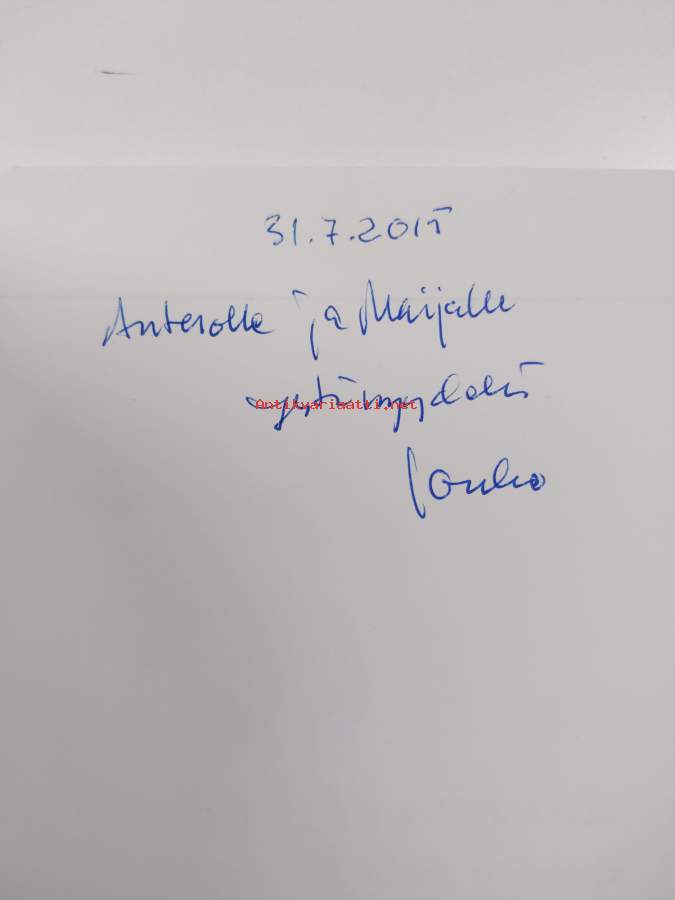 31.7.2015
Anterolle ja Maijalle
ystävyydellä
Antikvariaatti.net
Jouko